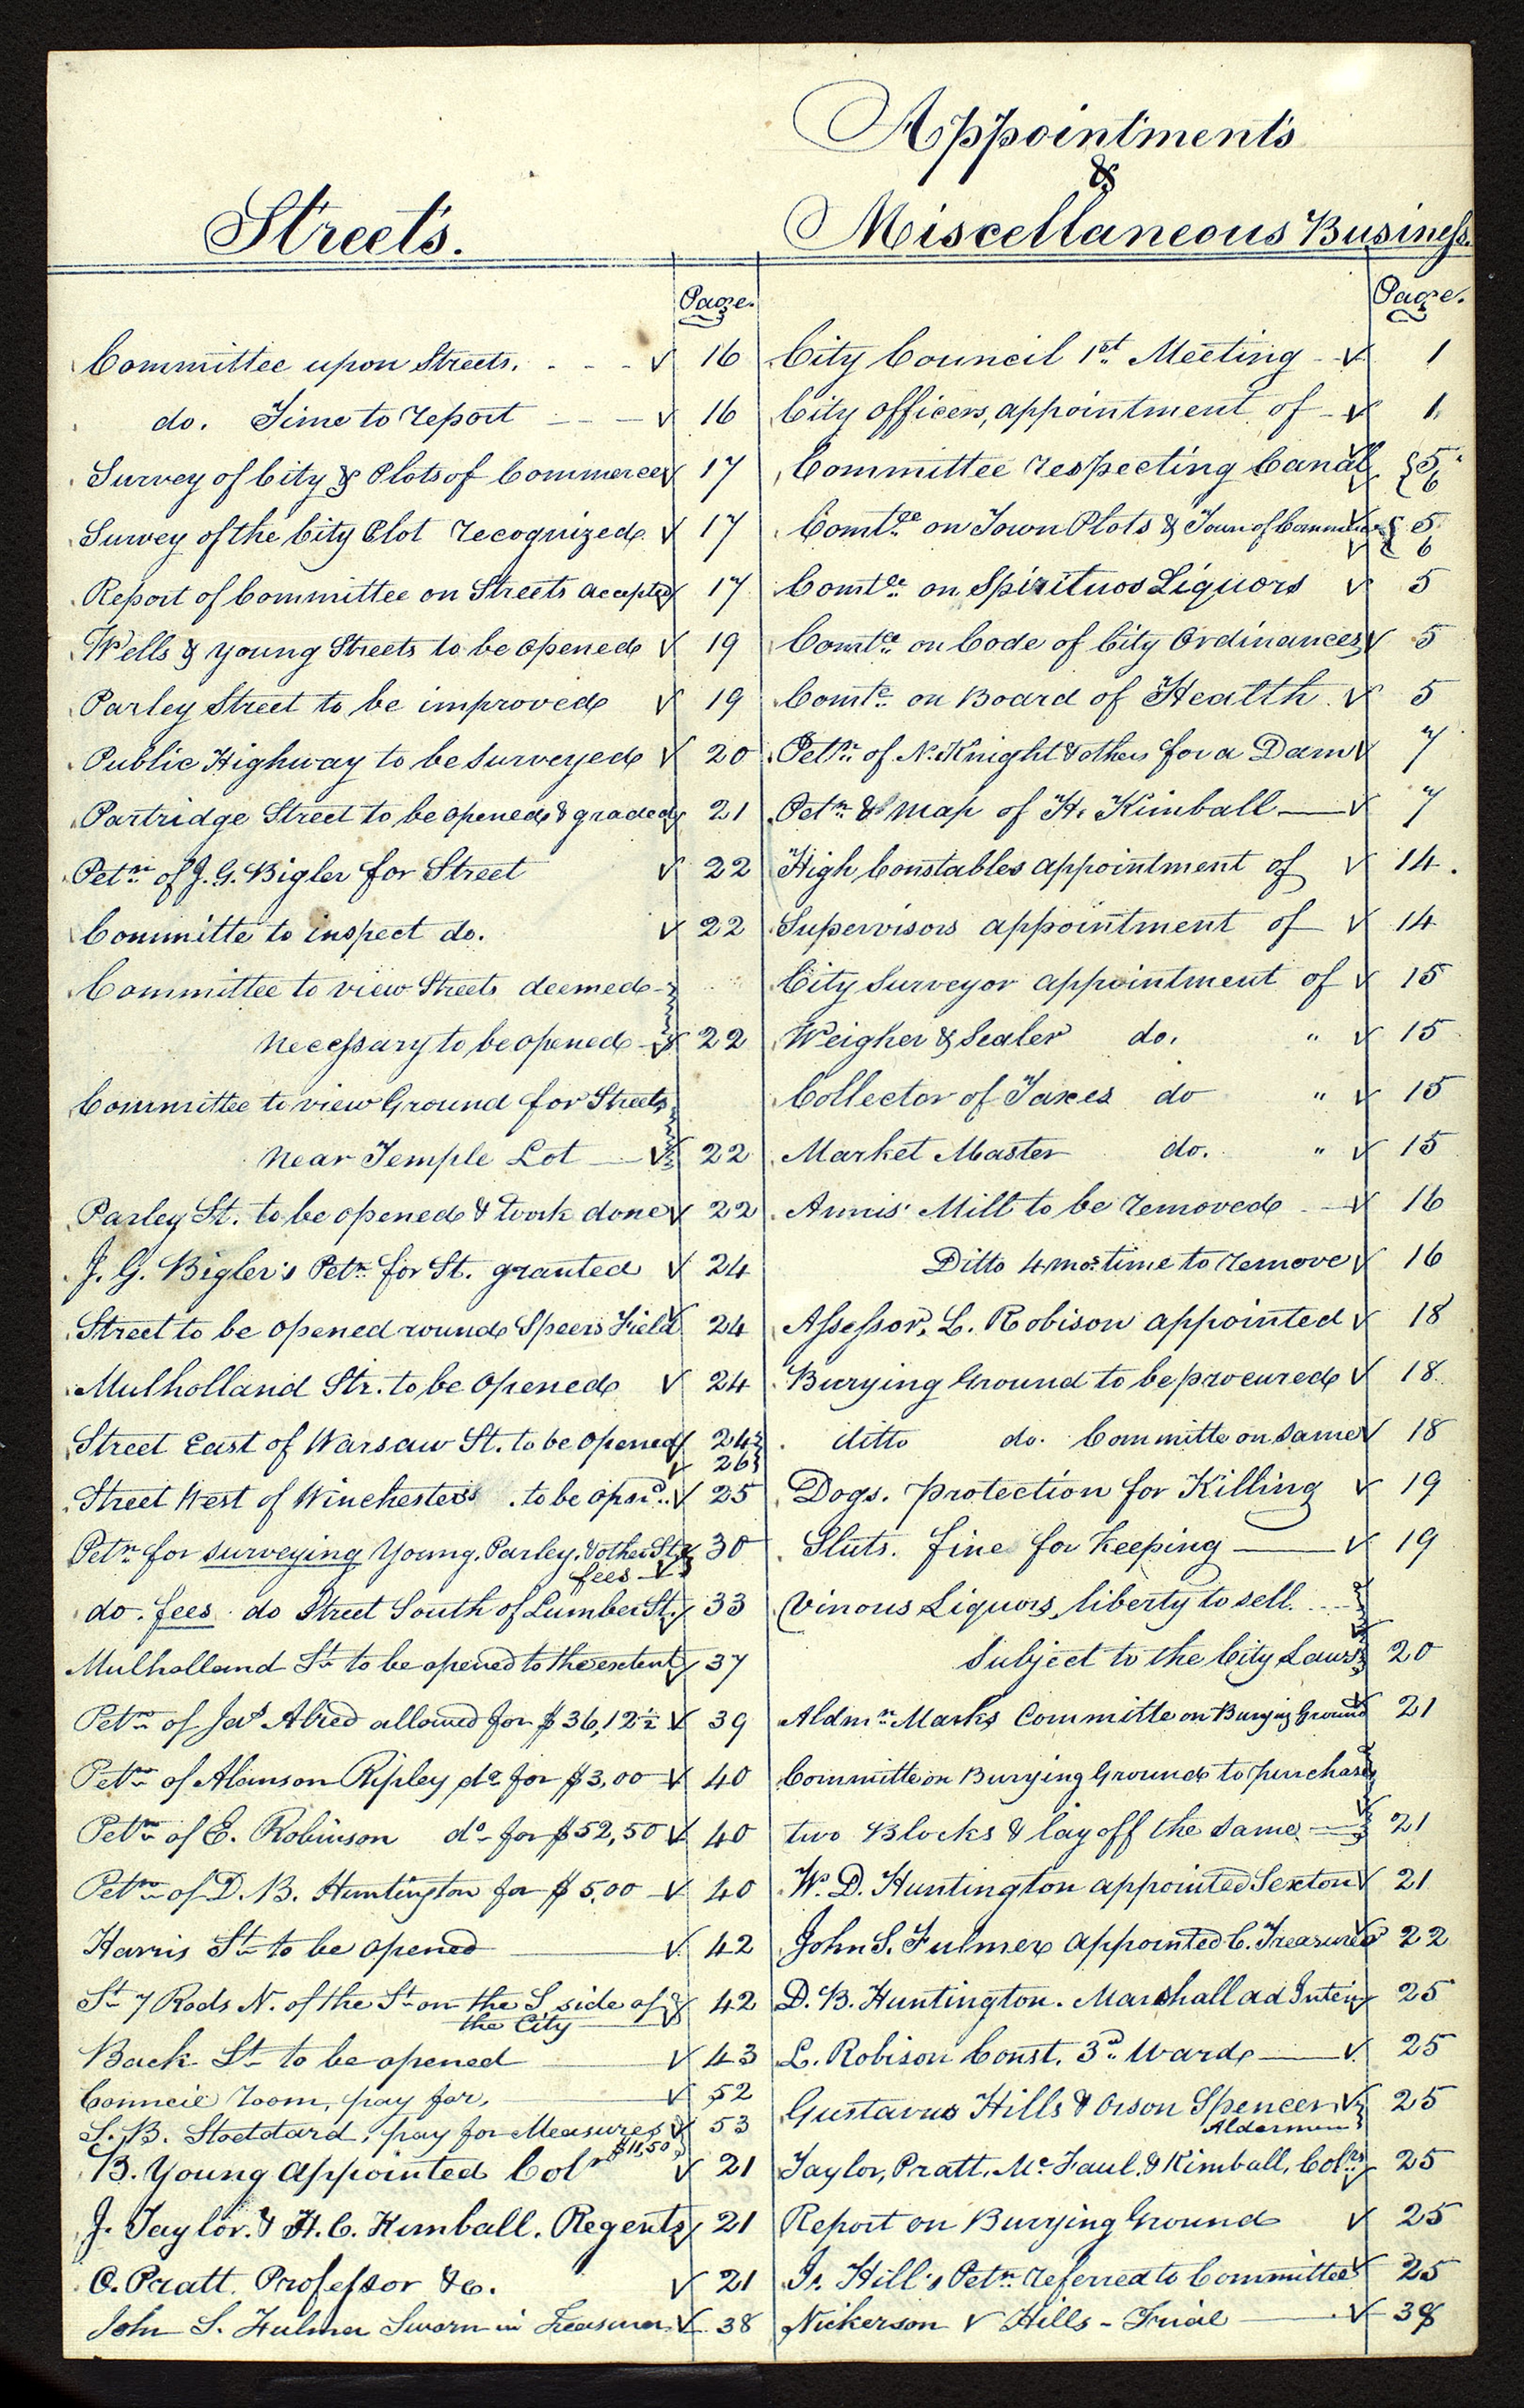 Streets.
Page.
Committee upon Streets. - - - ✓ 16
do. Time to report - - - ✓ 16
Survey of City & Plots of Commerce ✓ 17
Survey of the City Plot recognized ✓ 17
Report of Committee on Streets accepted ✓ 17
Wells & Young Streets to be opened ✓ 19
Parley Street to be improved ✓ 19
Public Highway to be surveyed ✓ 20
Partridge Street to be opened & graded ✓ 21
Petn. of J. G. Bigler for Street ✓ 22
Committe to inspect do. ✓ 22
Committee to view Streets deemed
necessary to be opened ✓ 22
Committee to view Ground for Streets
near Temple Lot ✓ 22
Parley St. to be opened & work done ✓ 22
J. G. Bigler's Petn. for St. granted ✓ 24
Street to be opened round Speers Field ✓ 24
Mulholland Str. to be opened ✓ 24
Street East of Warsaw St. to be opened ✓ 24
✓ 26
Street West of Winchesters . to be opend. ✓ 25
Petn. for surveying Young, Parley, & other Sts ✓ 30
fees ✓
do. fees do Street South of Lumber St. ✓ 33
Mulholland St. to be opened to the extent ✓ 37
Petn. of Jas. Alred allowed for $36,12½ ✓ 39
Petn. of Alanson Ripley do. for $3,00 ✓ 40
Petn. of E. Robinson do. for $52,50 ✓ 40
Petn. of D. B. Huntington for $5,00 ✓ 40
Harris St. to be opened ✓ 42
St. 7 Rods N. of the St. on the S. side of ✓ 42
the City
Back St. to be opened ✓ 43
Council room, pay for, ✓ 52
S. B. Stoddard, pay for Measures ✓ 53
$11,50
B. Young appointed Colr ✓ 21
J. Taylor. & H. C. Kimball. Regents ✓ 21
O. Pratt. Professor &c. ✓ 21
John S. Fulmer Sworn in Treasurer ✓ 38
Appointments
&
Miscellaneous Business.
Page.
City Council 1st. Meeting ✓ 1
City officers, appointment of ✓ 1
Committee respecting Canal ✓ 5
✓ 6
Comtee. on Town Plots & Town of Commerce ✓ 5
✓ 6
Comtee. on Spirituos Liquors ✓ 5
Comtee. on Code of City Ordinances ✓ 5
Comte. on Board of Health ✓ 5
Petn. of N. Knight & others for a Dam ✓ 7
Petn. & Map of H. Kimball ✓ 7
High Constables appointment of ✓ 14.
Supervisors appointment of ✓ 14
City Surveyor appointment of ✓ 15
Weigher & Sealer do. " ✓ 15
Collector of Taxes do " ✓ 15
Market Master do. " ✓ 15
Annis' Mill to be removed ✓ 16
Ditto 4 mos. time to remove ✓ 16
Assessor, L. Robison appointed ✓ 18
Burying Ground to be procured ✓ 18
ditto do. Committe on same ✓ 18
Dogs. protection for Killing ✓ 19
Sluts. fine for keeping ✓ 19
Vinous Liquors, liberty to sell.
Subject to the City Laws ✓ 20
Aldmn. Marks Committe on Burying Ground ✓ 21
Committe on Burying Ground to purchase
two Blocks & lay off the same ✓ 21
W. D. Huntington appointed Sexton ✓ 21
John S. Fulmer appointed C. Treasurer ✓ 22
D. B. Huntington. Marshall ad Interim ✓ 25
L. Robison Const. 3d. Ward ✓ 25
Gustavus Hills & Orson Spencer ✓ 25
Aldermen
Taylor, Pratt, Mc Faul. & Kimball, Colrs ✓ 25
Report on Burying Ground ✓ 25
Hill's Petn. referred to Committee ✓ 25
Nickerson v Hills - Trial ✓ 38